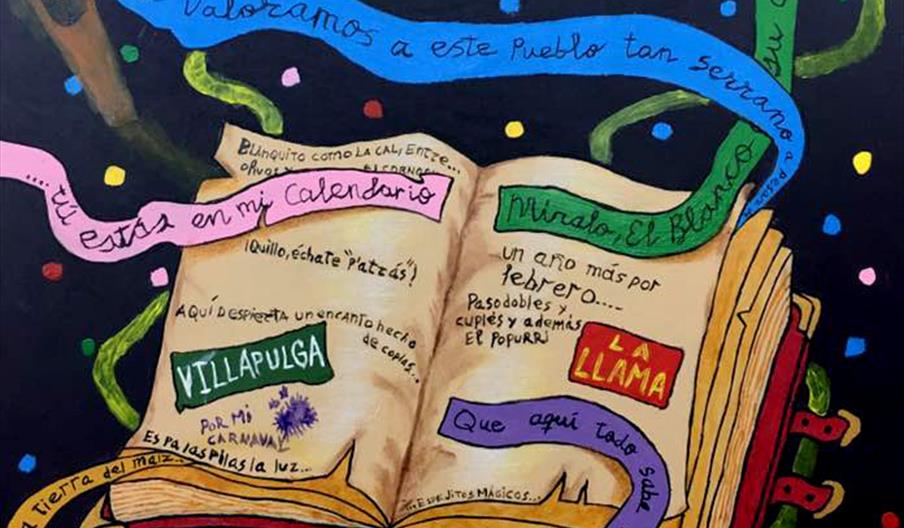 Valoramos a este Pueblo tan serrano a pesar
su
.... tú estás en mi Calendario
BLANQUITO COMO LA CAL, ENTRE...
olivos y
¡Quillo, échate "P'atrás"!
AQUÍ DESPIERTA UN ENCANTO HECHO
de coplas...
VILLAPULGA
POR MI
CARNAVAL
Es pa las pilas la luz...
tierra del maíz...
Míralo, El Blanco
un año más por
febrero....
Pasodobles y
cuplés y además
El POPURRI
LA
LLAMA
Que aquí todo sabe
ESPEJITOS MÁGICOS...